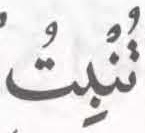 تُنْبِتُ